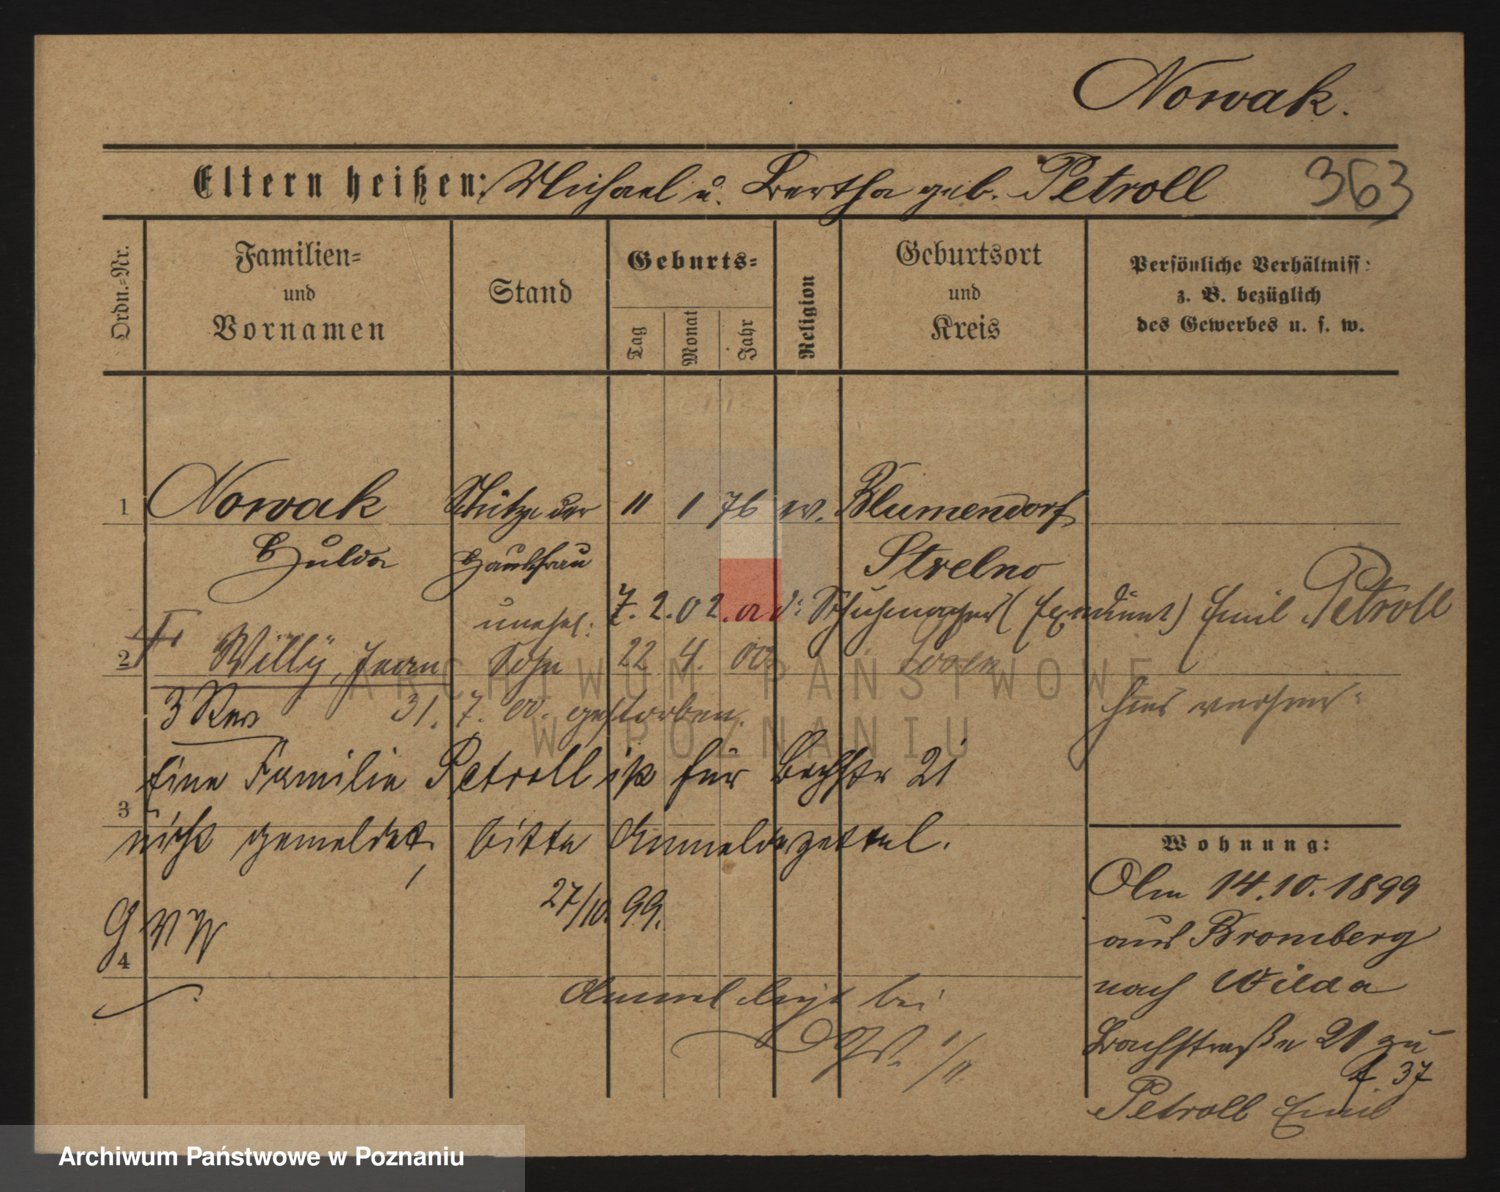 Nowak.
Eltern heißen: Michael u. Bertha geb. Petroll 363
Ordn.-Nr.
Familien-
und
Vornamen
Stand
Geburts-
Tag
Monat
Jahr
Religion
Geburtsort
und
Kreis
Persönliche Verhältniss:
z. B. bezüglich
des Gewerbes u. s. w.
1 Nowak Stütze der 11 1 76 ev. Blumendorf
Hulda Hausfrau Strelno
unehel: 7. 2. 02. Schuhmacher Emil Petroll
2 Willy, Sohn 22 4. 00 hier
3 31. 7. 00. gestorben.
Eine Familie Petroll ist für Bachstr 21
3
nicht gemeldet, bitte Anmeldezettel.
27/10. 99.
4
liegt bei
1/11.
Wohnung:
14.10.1899
aus Bromberg
nach Wilda
Bachstraße 21 zu
37
Petroll Emil
ARCHIWUM PAŃSTWOWE
W POZNANIU
Archiwum Państwowe w Poznaniu